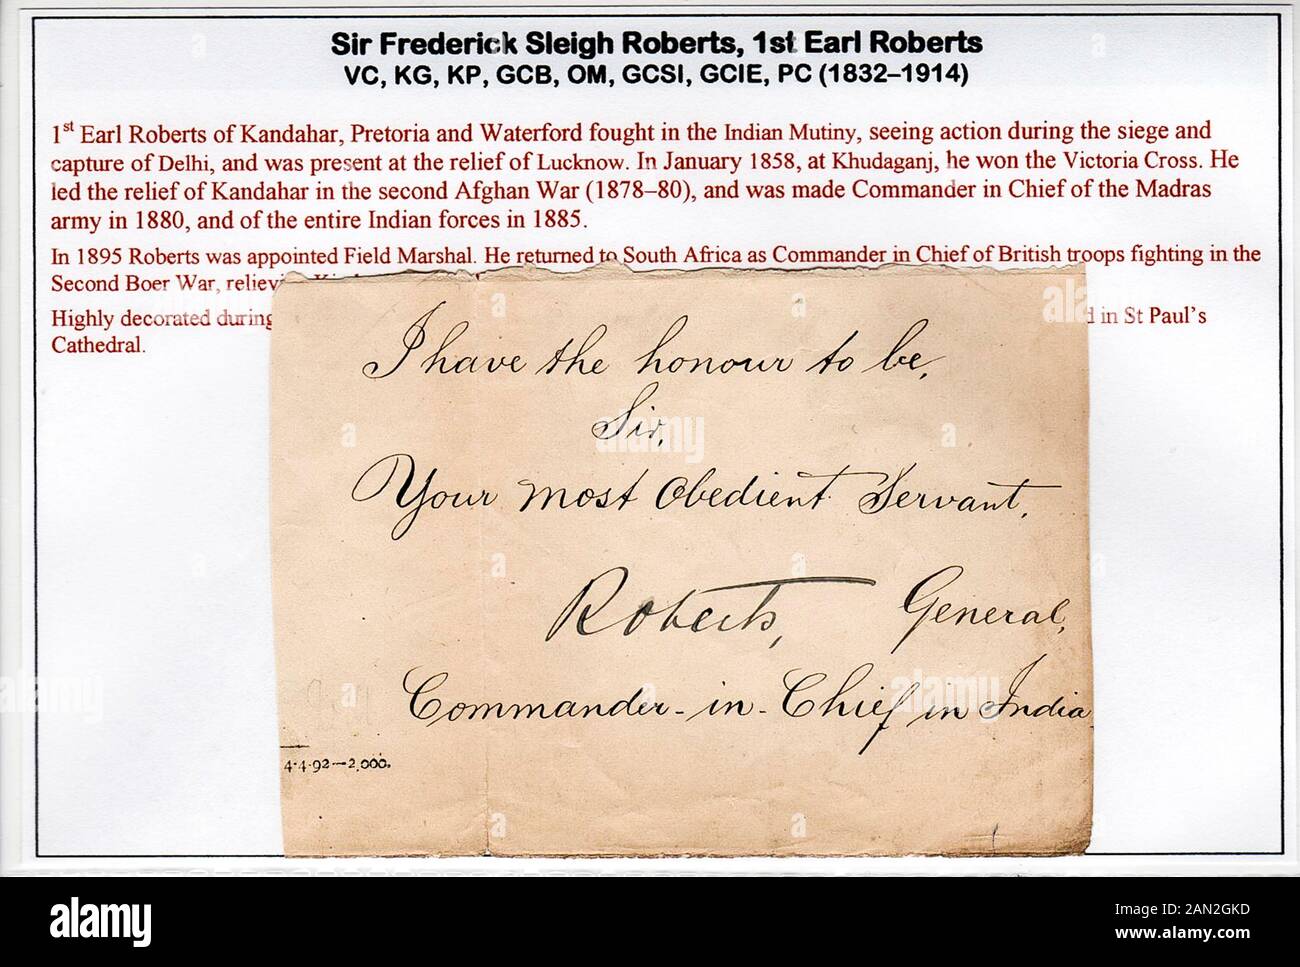 Sir Frederick Sleigh Roberts, 1st Earl Roberts
VC, KG, KP, GCB, OM, GCSI, GCIE, PC (1832–1914)
1st Earl Roberts of Kandahar, Pretoria and Waterford fought in the Indian Mutiny, seeing action during the siege and
capture of Delhi, and was present at the relief of Lucknow. In January 1858, at Khudaganj, he won the Victoria Cross. He
led the relief of Kandahar in the second Afghan War (1878–80), and was made Commander in Chief of the Madras
army in 1880, and of the entire Indian forces in 1885.
In 1895 Roberts was appointed Field Marshal. He returned to South Africa as Commander in Chief of British troops fighting in the
Second Boer War,
Highly decorated during in St Paul's
Cathedral.
I have the honour to be,
Sir,
Your most Obedient Servant,
Roberts, General,
Commander-in-Chief in India
4·4·92—2,000.
a alamy
alamy
Image ID: 2AN2GKD
www.alamy.com